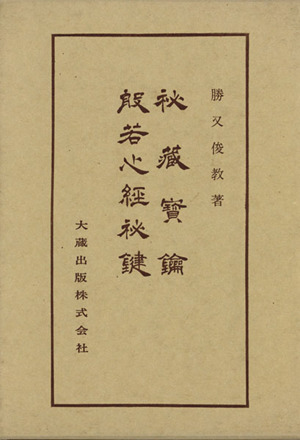 勝又俊教著
祕藏寶鑰
般若心経祕鍵
大蔵出版株式会社